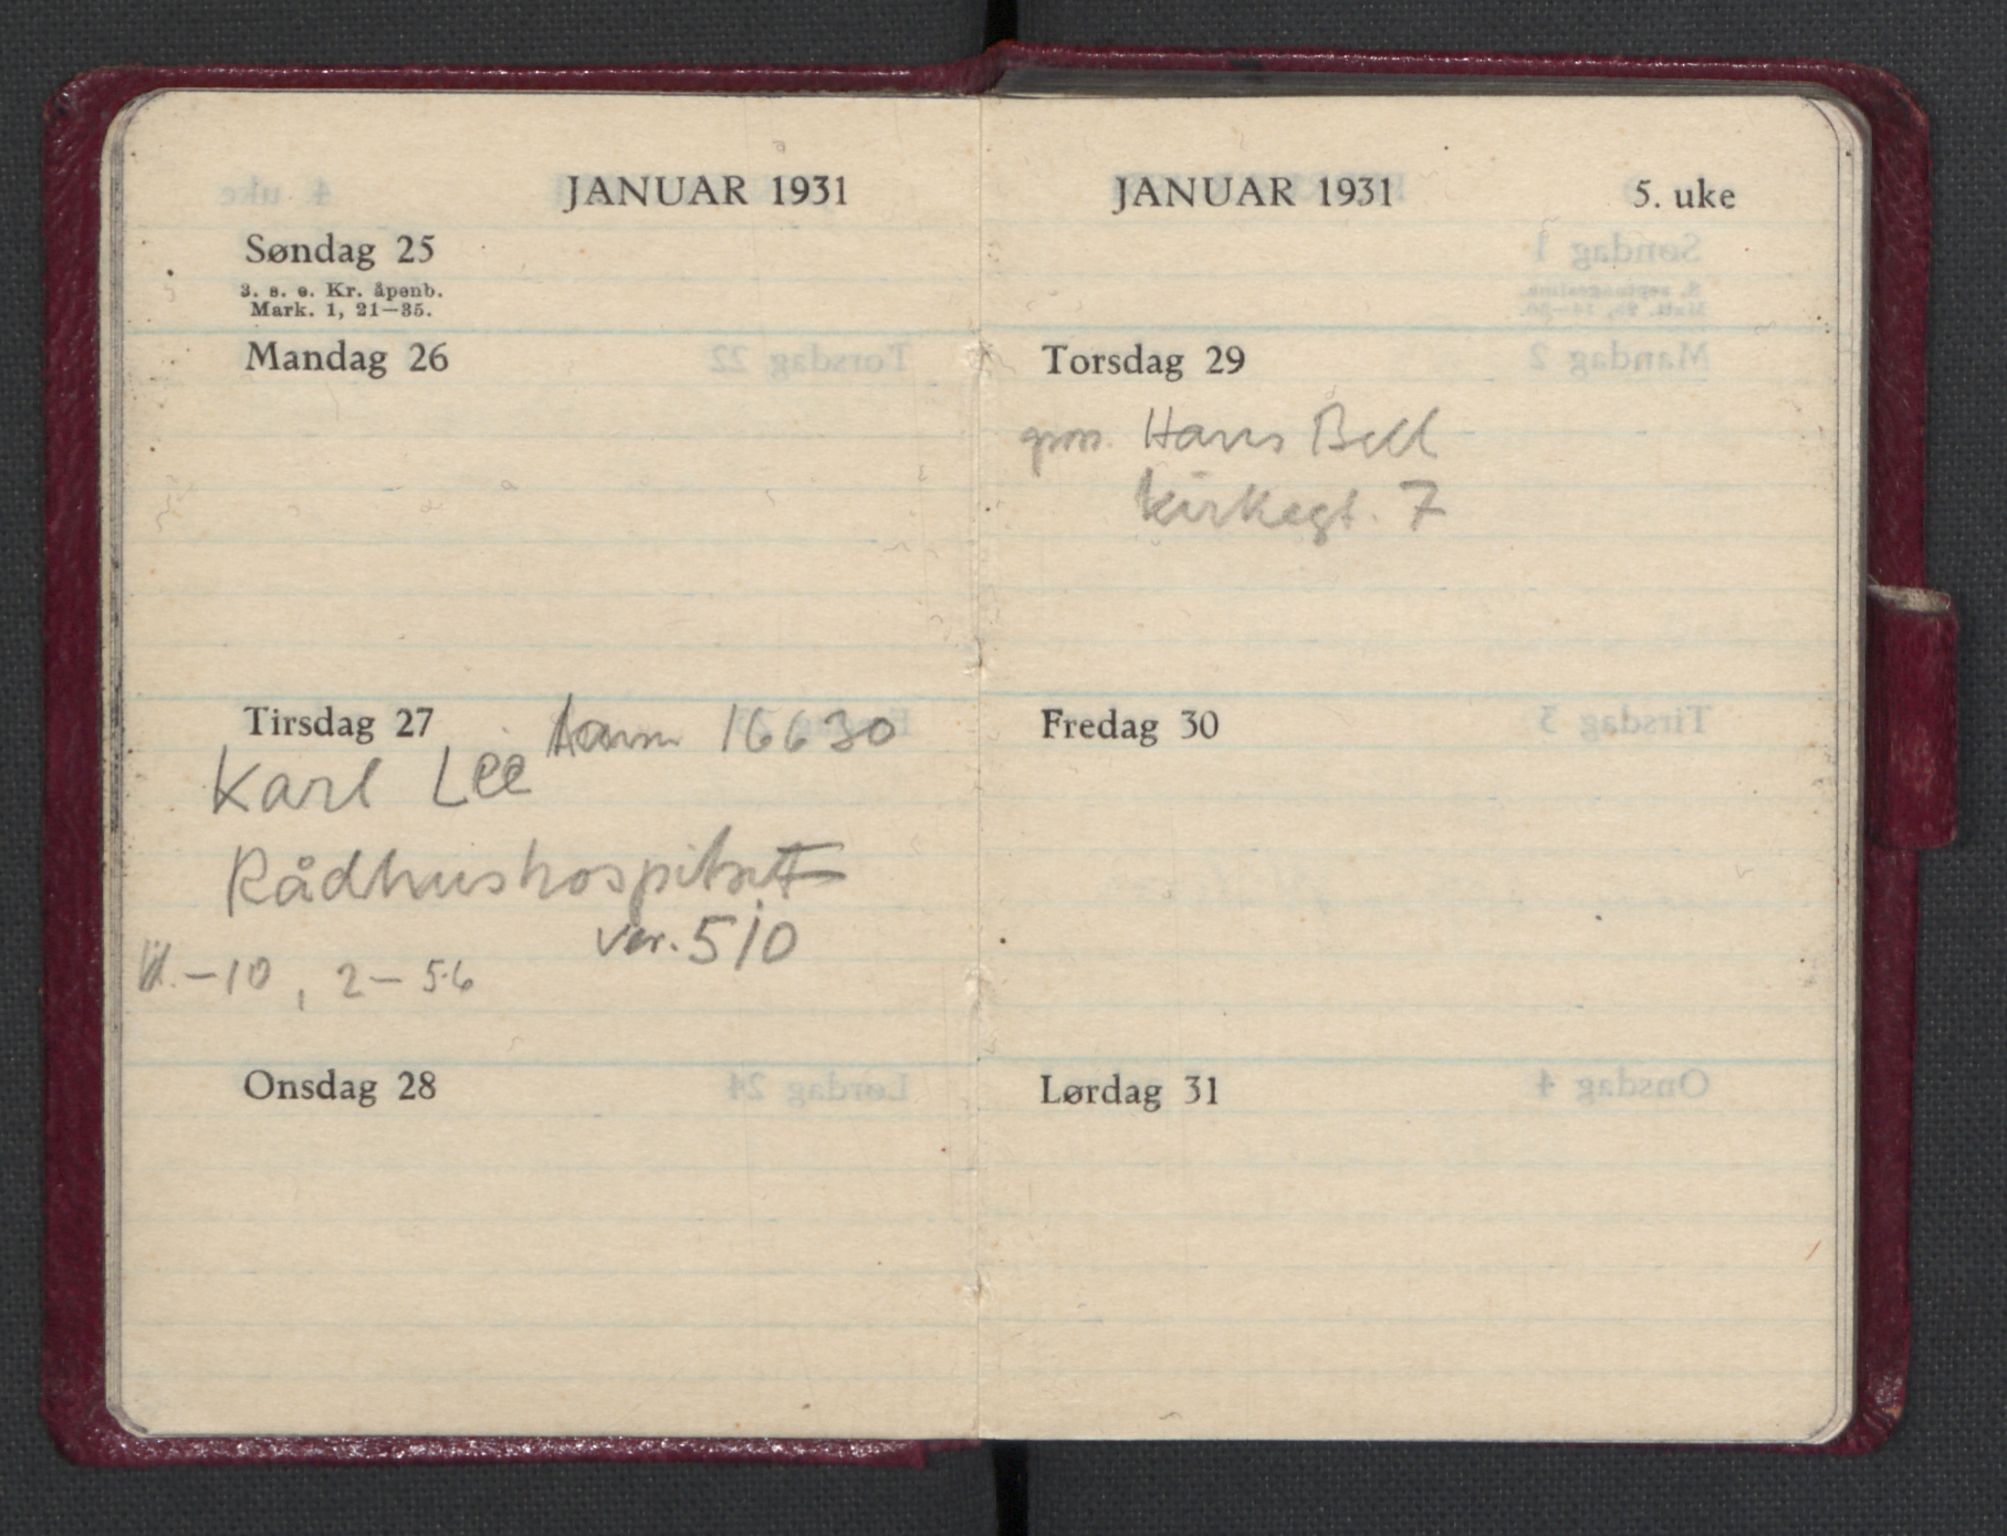 JANUAR 1931
Søndag 25
3. s. e. Kr. åpenb.
Mark. 1, 21—35.
Mandag 26
Tirsdag 27
16630
Karl Lee
Rådhushospitset
vær. 510
–10, 2–5.6
Onsdag 28
JANUAR 1931 5. uke
Torsdag 29
Hans Bell
Kirkegt. 7
Fredag 30
Lørdag 31